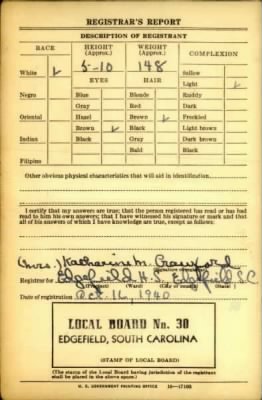 REGISTRAR'S REPORT
DESCRIPTION OF REGISTRANT
RACE HEIGHT (Approx.) WEIGHT (Approx.) COMPLEXION
5-10 148
White ✓ Sallow
EYES HAIR Light ✓
Negro Blue Blonde Ruddy
Gray Red Dark
Oriental Hazel Brown ✓ Freckled
Brown ✓ Black Light brown
Indian Black Gray Dark brown
Bald Black
Filipino
Other obvious physical characteristics that will aid in identification
I certify that my answers are true; that the person registered has read or has had
read to him his own answers; that I have witnessed his signature or mark and that
all of his answers of which I have knowledge are true, except as follows:
Mrs. Katharine M. Crawford
Registrar for Edgefield H.S. Edgefield S.C.
(Precinct) (Ward) (City or county) (State)
Date of registration Oct. 16, 1940
LOCAL BOARD No. 30
EDGEFIELD, SOUTH CAROLINA
(STAMP OF LOCAL BOARD)
(The stamp of the Local Board having jurisdiction of the registrant
shall be placed in the above space.)
U. S. GOVERNMENT PRINTING OFFICE 16—17105